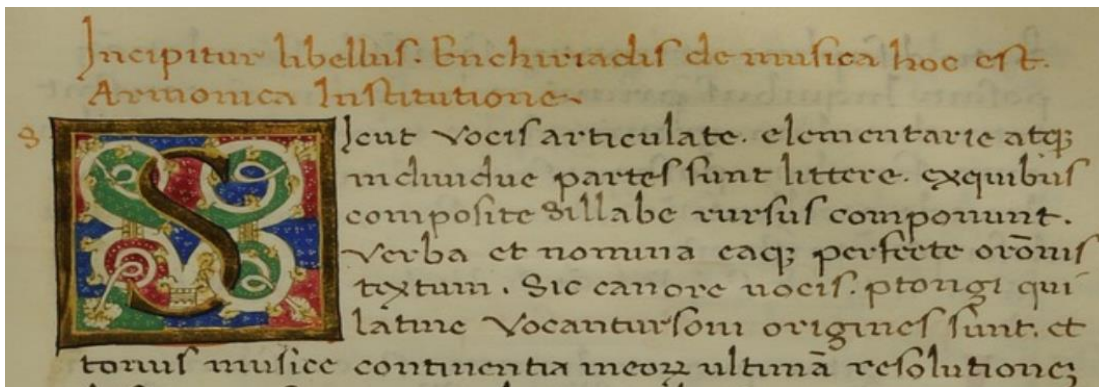 Incipitur libellus. Enchiriadis de musica hoc est.
Armonica Institutione.
S
Icut vocis articulate. elementarie atqꝫ
individue partes sunt littere. exquibus
composite Sillabe rursus componunt.
verba et nomina eaqꝫ perfecte or̄onis
textum. Sic canore uocis. ptongi qui
latine vocantursoni origines sunt. et
totius musice continentia ineoꝝ ultimā resolutioneꝫ